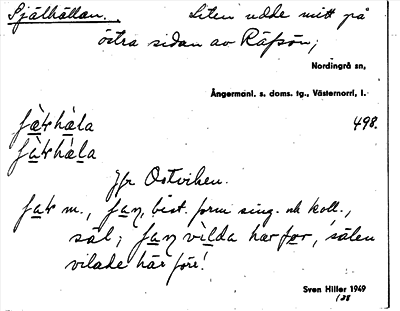 Själhällan. Liten udde mitt på
östra sidan av Räfsön;
Nordingrå sn,
Ångermanl. s. doms. tg., Västernorrl. l.
498.
Jfr Ostviken.
m., best. form sing. ock koll.,
säl; vilda har för, 'sälen
vilade här före'.
Sven Hiller 1949